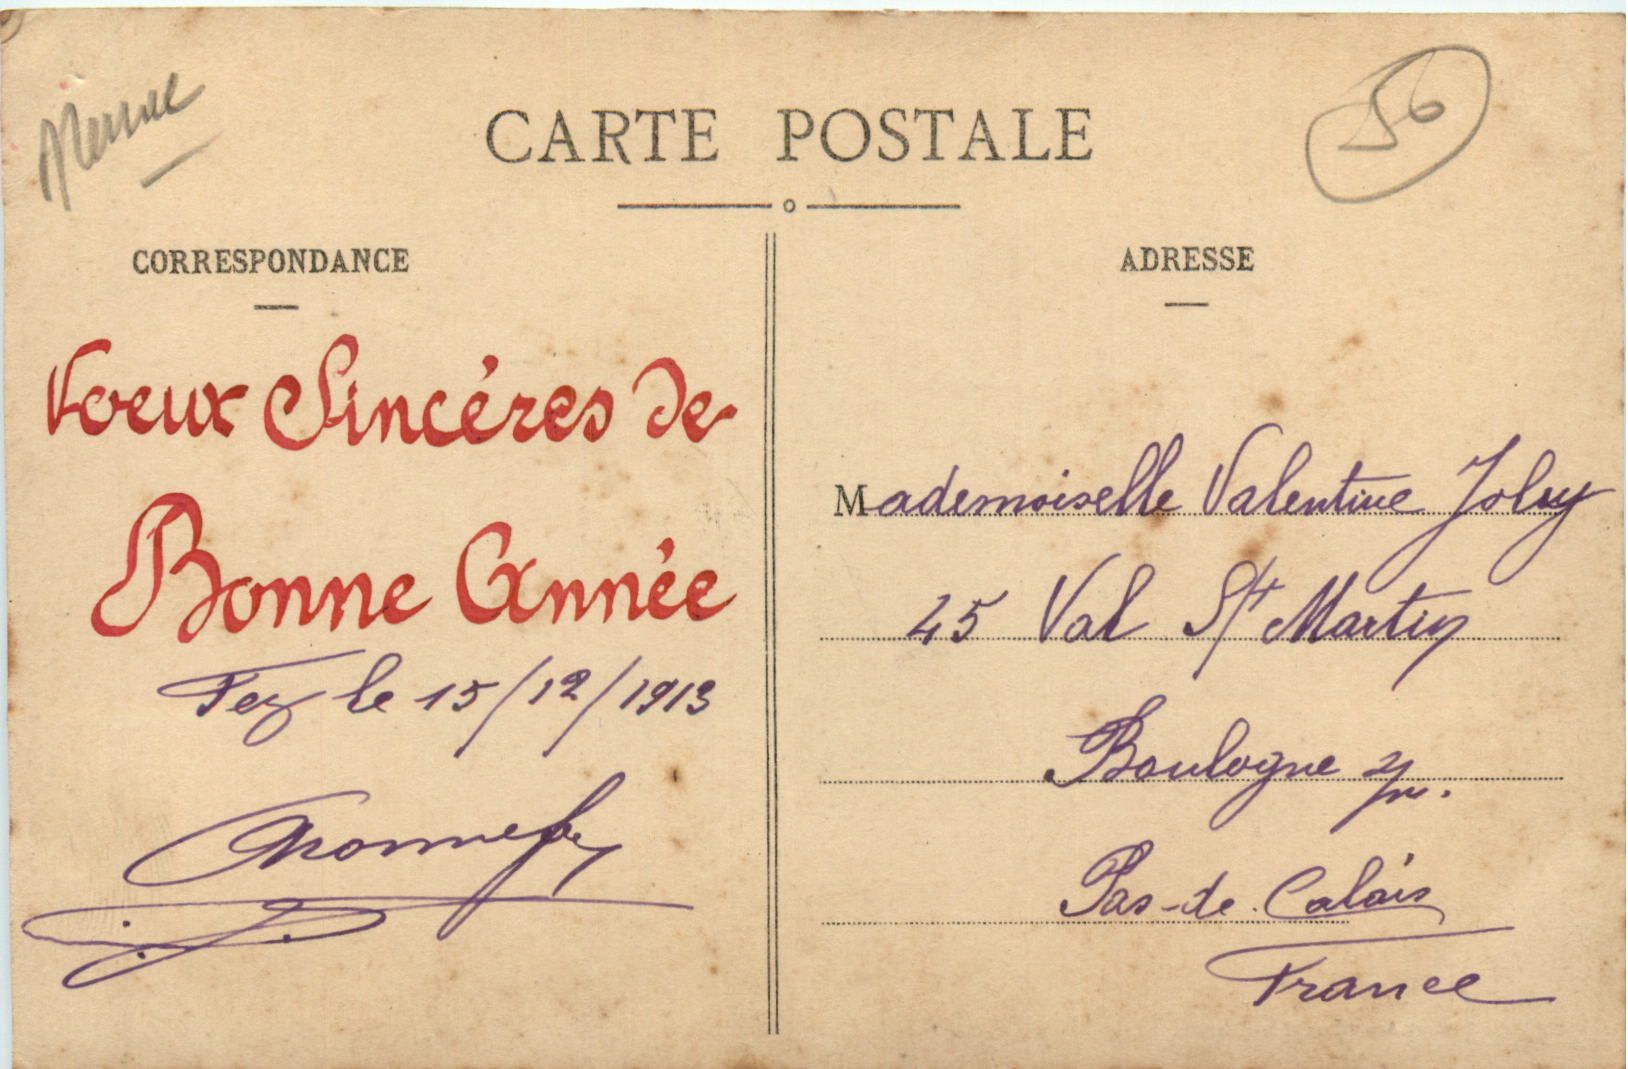 CARTE POSTALE
56
CORRESPONDANCE
Voeux Sincéres de
Bonne Année
Fez le 15/12/1913
ADRESSE
Mademoiselle Valentine Joly
45 Val St Martin
Boulogne s/m.
Pas-de-Calais
France